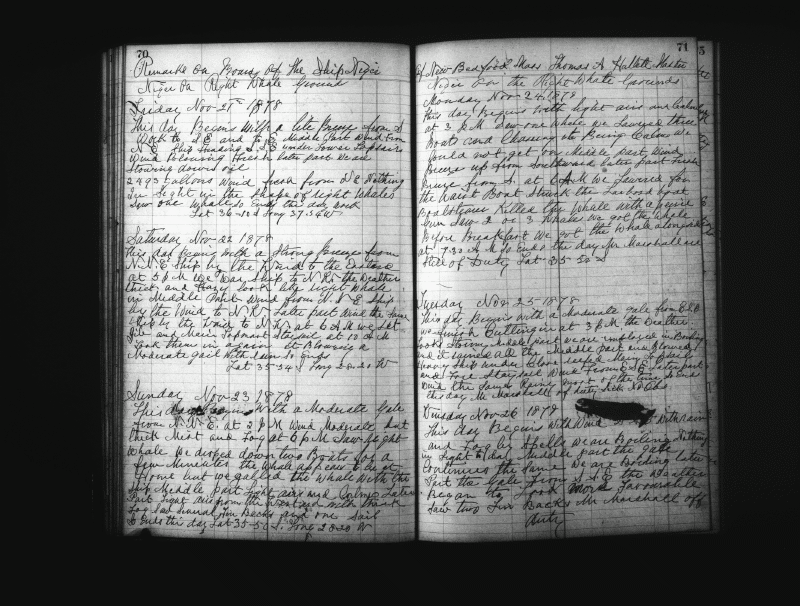 70
Remarks on Board of the Ship Niger
Niger on Right Whale Ground
Friday Nov 21st 1878
This day Begins With a lite Breeze from
Middle Part Wind from
Ship Heading S.E under Lower Topsails
Wind Blowing Fresh later part We are
Stowing down oil
2493 Gallons Wind fresh from N.E Nothing
In Sight in the Shape of right Whales
Saw one Whale So Ends the day
Lat 36-10 S Long 37.34 W
Saturday Nov 22 1878
This day Begins with a Strong Breeze from
N.N.E Ship by the Wind to the Eastward
at 3 P M We War Ship to N.W. the Weather
thick and
in Middle Part Wind from N.N.E Ship
by the Wind to N.W. Later Part Wind the Same
Ship by the Wind to N.W. at 6 A M we Set
and Main Topmast Staysail at 10 A M
Took them in again it Blowing a
Moderate gail With rain So ends
Lat 35-34 S Long 28.20 W
Sunday Nov 23 1878
This day Begins With a Moderate Gale
from N.N.E. at 2 P M Wind Moderate but
thick Mist and Fog at 6 P M Saw right
Whale We droped down two Boats for a
few Minutes the Whale appear to be at
Home but we gallied the Whale With the
Ship Middle part light airs and Calms Later
Part light airs from the Westward with thick
Fog Saw Several Fin Backs and one Sail
So Ends this day Lat 35-50 S. Long 28-20 W
71
of New Bedford Mass Thomas A Hallett Master
Niger on the Right Whale Grounds
Monday Nov 24 1878
This day Begins With light airs and Calms
at 3 P M Saw one Whale We Lowered three
Boats and Chasing it Being Calm We
Could not get on Middle part Wind
Breeze up from Southward later part Fresh
Breeze from S. at 6 A M We Lowered for
the Waist Boat Struck the Larboard boat
Boatsteerer Killed the Whale with a
Gun Saw 2 or 3 Whales We got the Whale
Before Breakfast We got the Whale alongside
at 7.30 A M So Ends the day Mr Marshall are
Still off Duty Lat 35-50 S
Tuesday Nov 25 1878
This day Begins With a Moderate gale from
we finish Cutting in at 3 P M the Weather
looks Stormy Middle part we are employed in Boiling
and it rained all the Middle part and Blowed
Heavy Ship under Close reefed Main Topsail
and Fore Staysail Wind from E.S.E Later part
Wind the Same Rainy most of the time So Ends
this day Mr Marshall off Duty Lat No Obs
Nov 26 1878
This day Begins With Wind with rain
and Fog by Spells We are Boiling Nothing
in Sight to day Middle part the Gale
Continues the Same We are Boiling later
Part the Gale from the Weather
Began to Look more Favourable
Saw two Fin Backs Mr Marshall off
duty